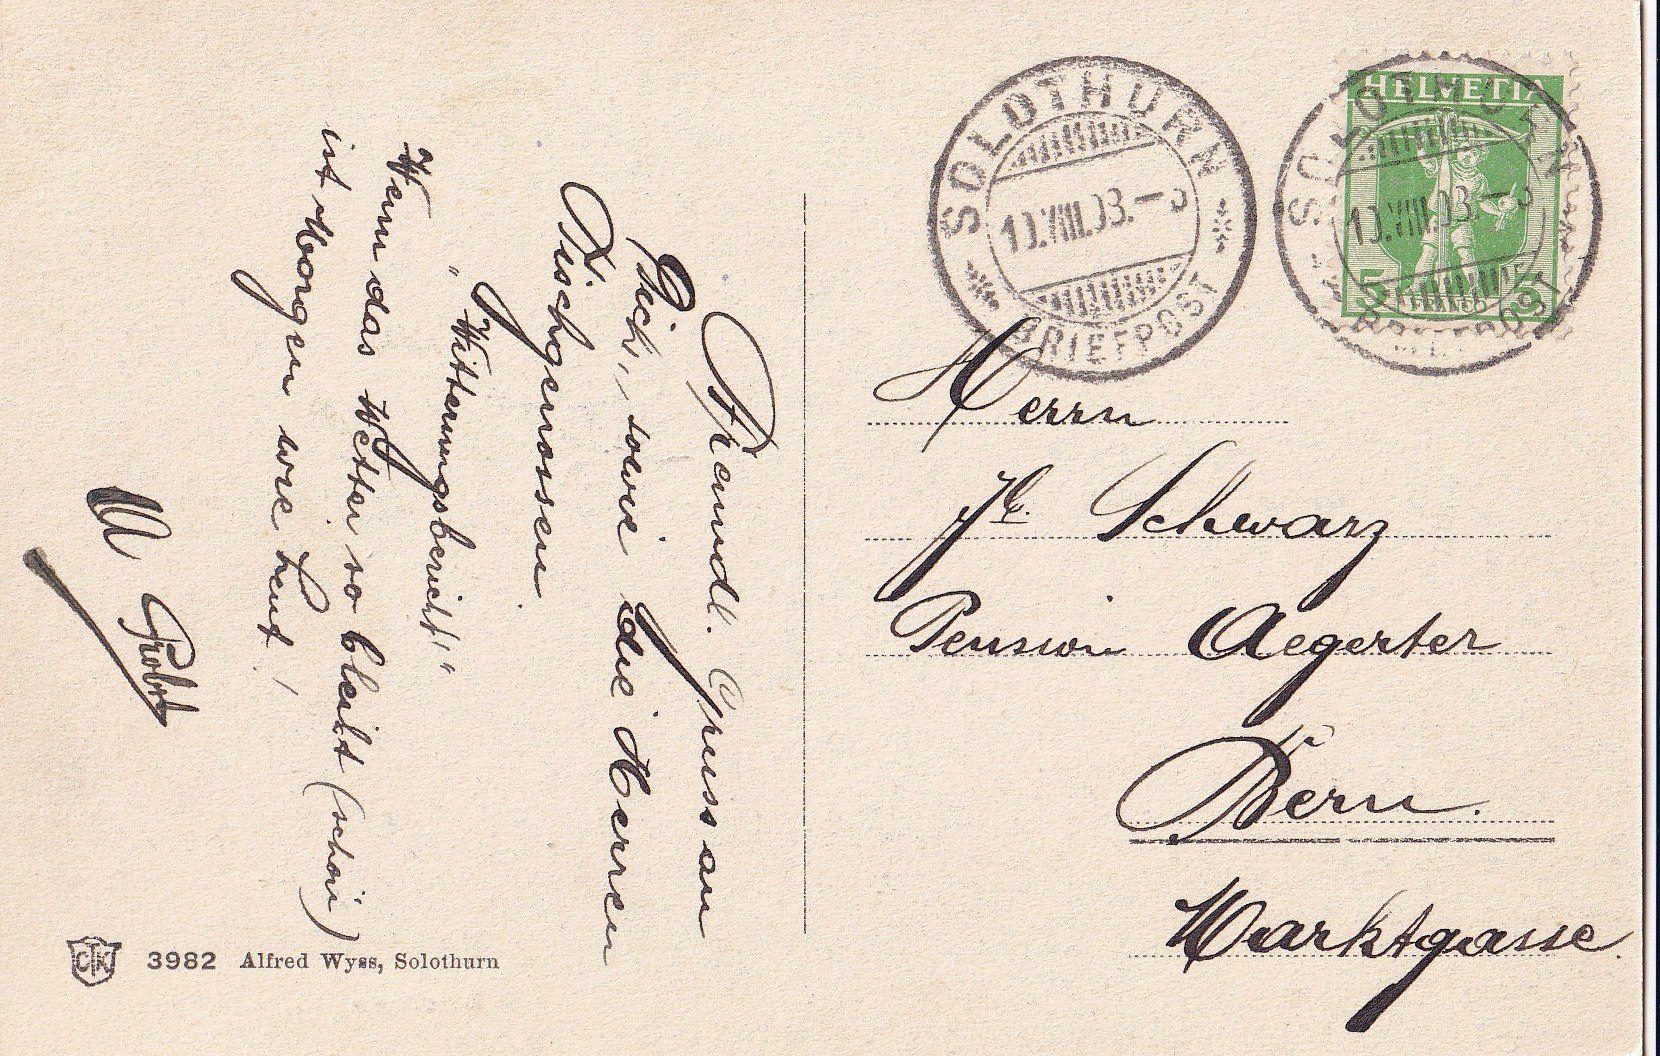 Freundl. Gruss an
Dich, sowie die Herren
Tischgenossen
"Witterungsbericht"
Wenn das Wetter so bleibt (schön)
ist Morgen wie heut!
Probst
SOLOTHURN
10.VIII.
BRIEFPOST
SOLOTHURN
10.VIII.
BRIEFPOST
HELVETIA
5 5
FRANCO
Herrn
Schwarz
Pension Aegerter
Bern.
Marktgasse.
CTK 3982 Alfred Wyss, Solothurn